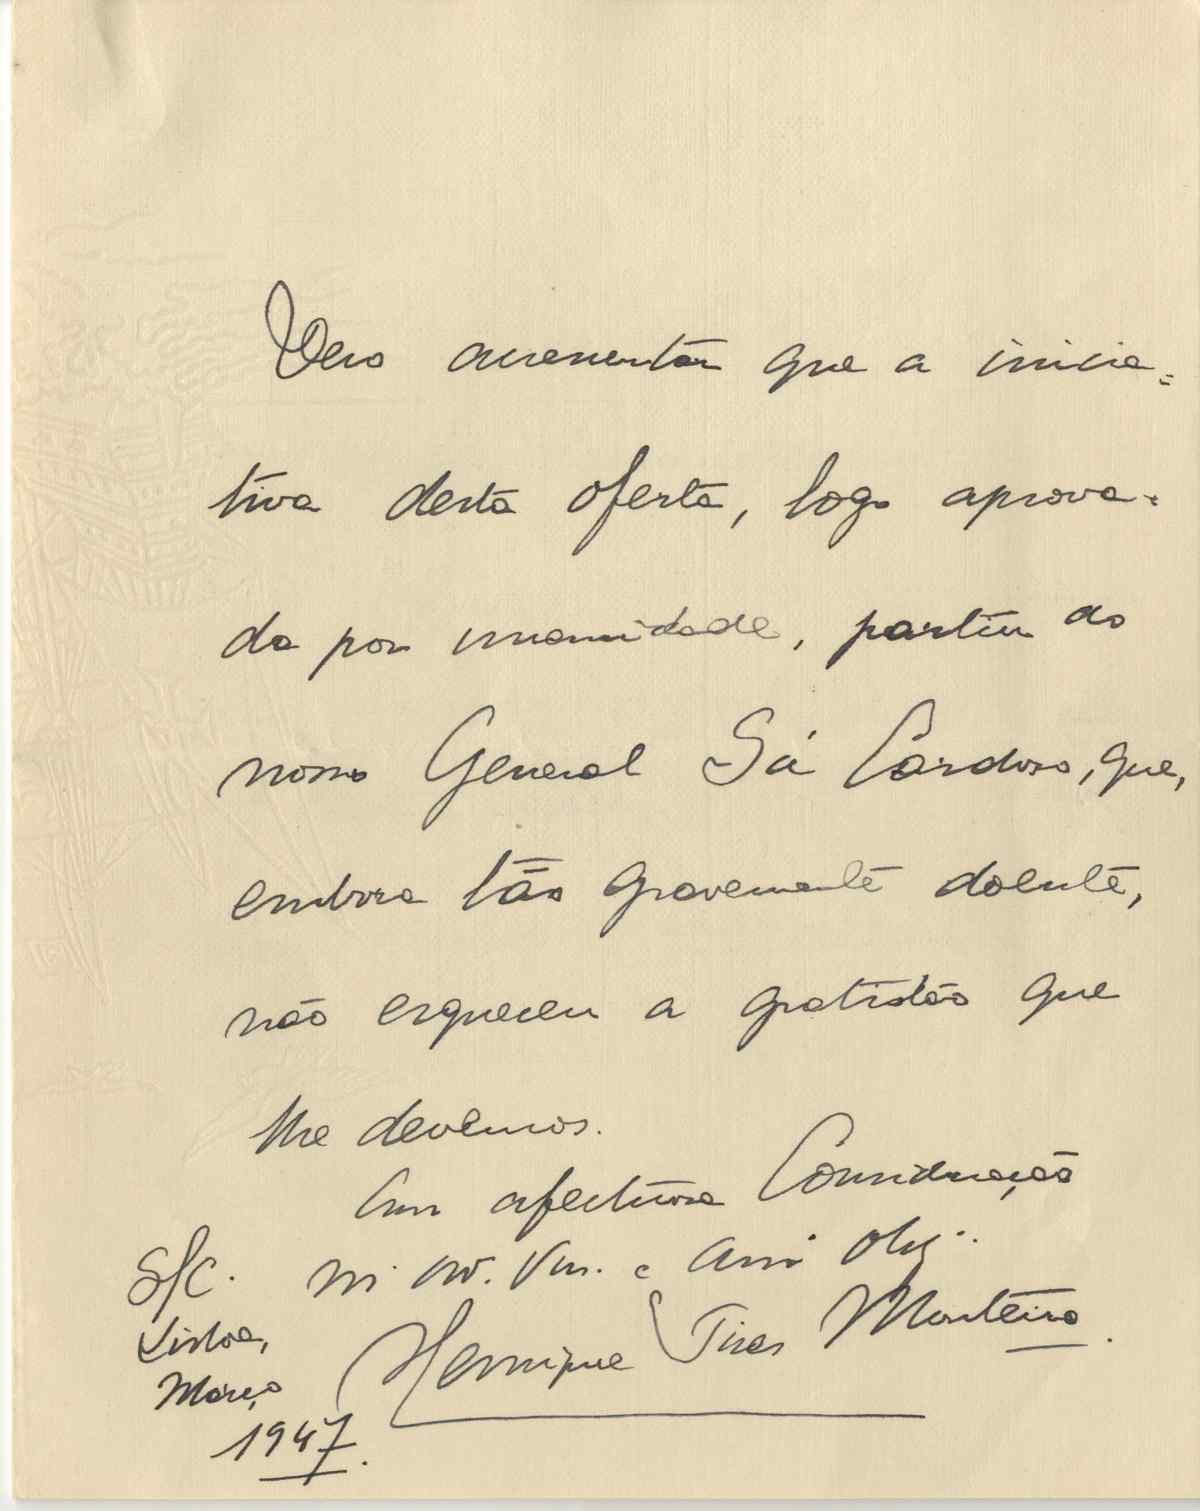 Devo acrescentar que a inicia=
tiva desta oferta, logo aprova-
da por unanimidade, partiu do
nosso General Sá Cardoso, que,
embora tão gravemente doente,
não esqueceu a gratidão que
lhe devemos.
Com afectuosa Consideração
S/C. m.
Lisboa, Henrique Pires Monteiro.
Março
1947.